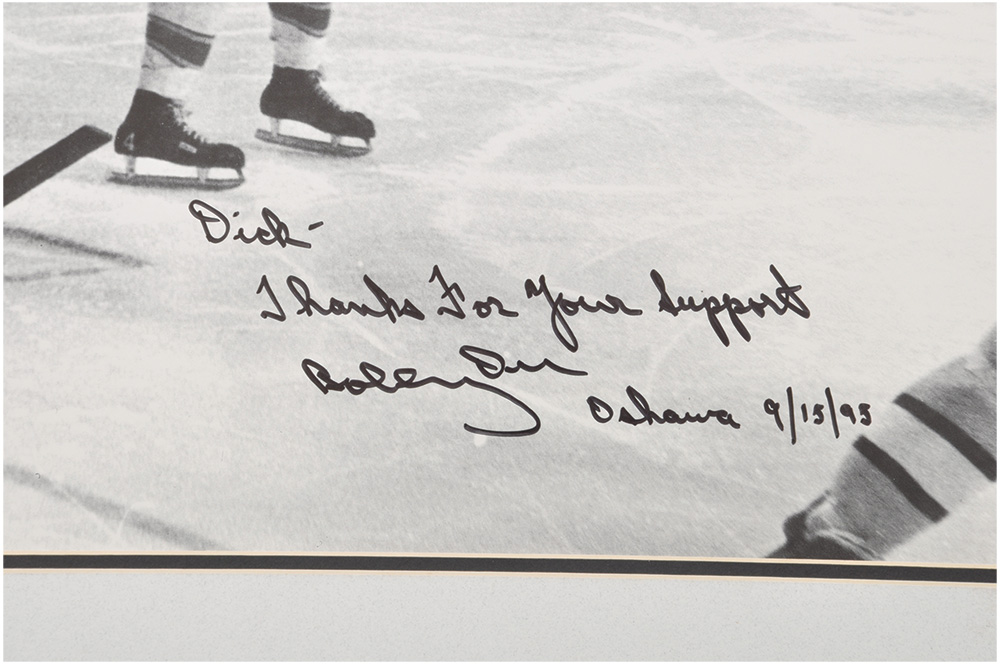 4
Dick-
Thanks For Your Support
Bobby Orr
Oshawa 9/15/95